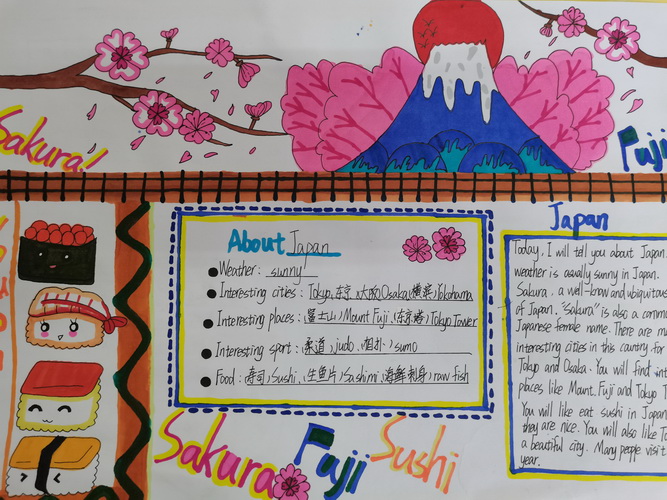 Sakura!
Fuji
About Japan
Weather: sunny
Interesting cities: Tokyo,东京,大阪Osaka,横滨,Yokohama
Interesting places: 富士山,Mount Fuji,东京塔,Tokyo Tower
Interesting sport: 柔道,judo、相扑、sumo
Food: 寿司,Sushi、生鱼片,Sashimi,海鲜刺身,raw fish
Sakura Fuji Sushi
Japan
Today, I will tell you about Japan.
weather is aqually sunny in Japan.
Sakura, a well-know and ubiquitous
of Japan. "Sakura" is also a commo
Japanese female name. There are m
interesting cities in this country for
Tokyo and Osaka. You will find int
places like Mount. Fuji and Tokyo T
You will like eat sushi in Japan
they are nice. You will also like T
a beautiful city. Many people visit
year.